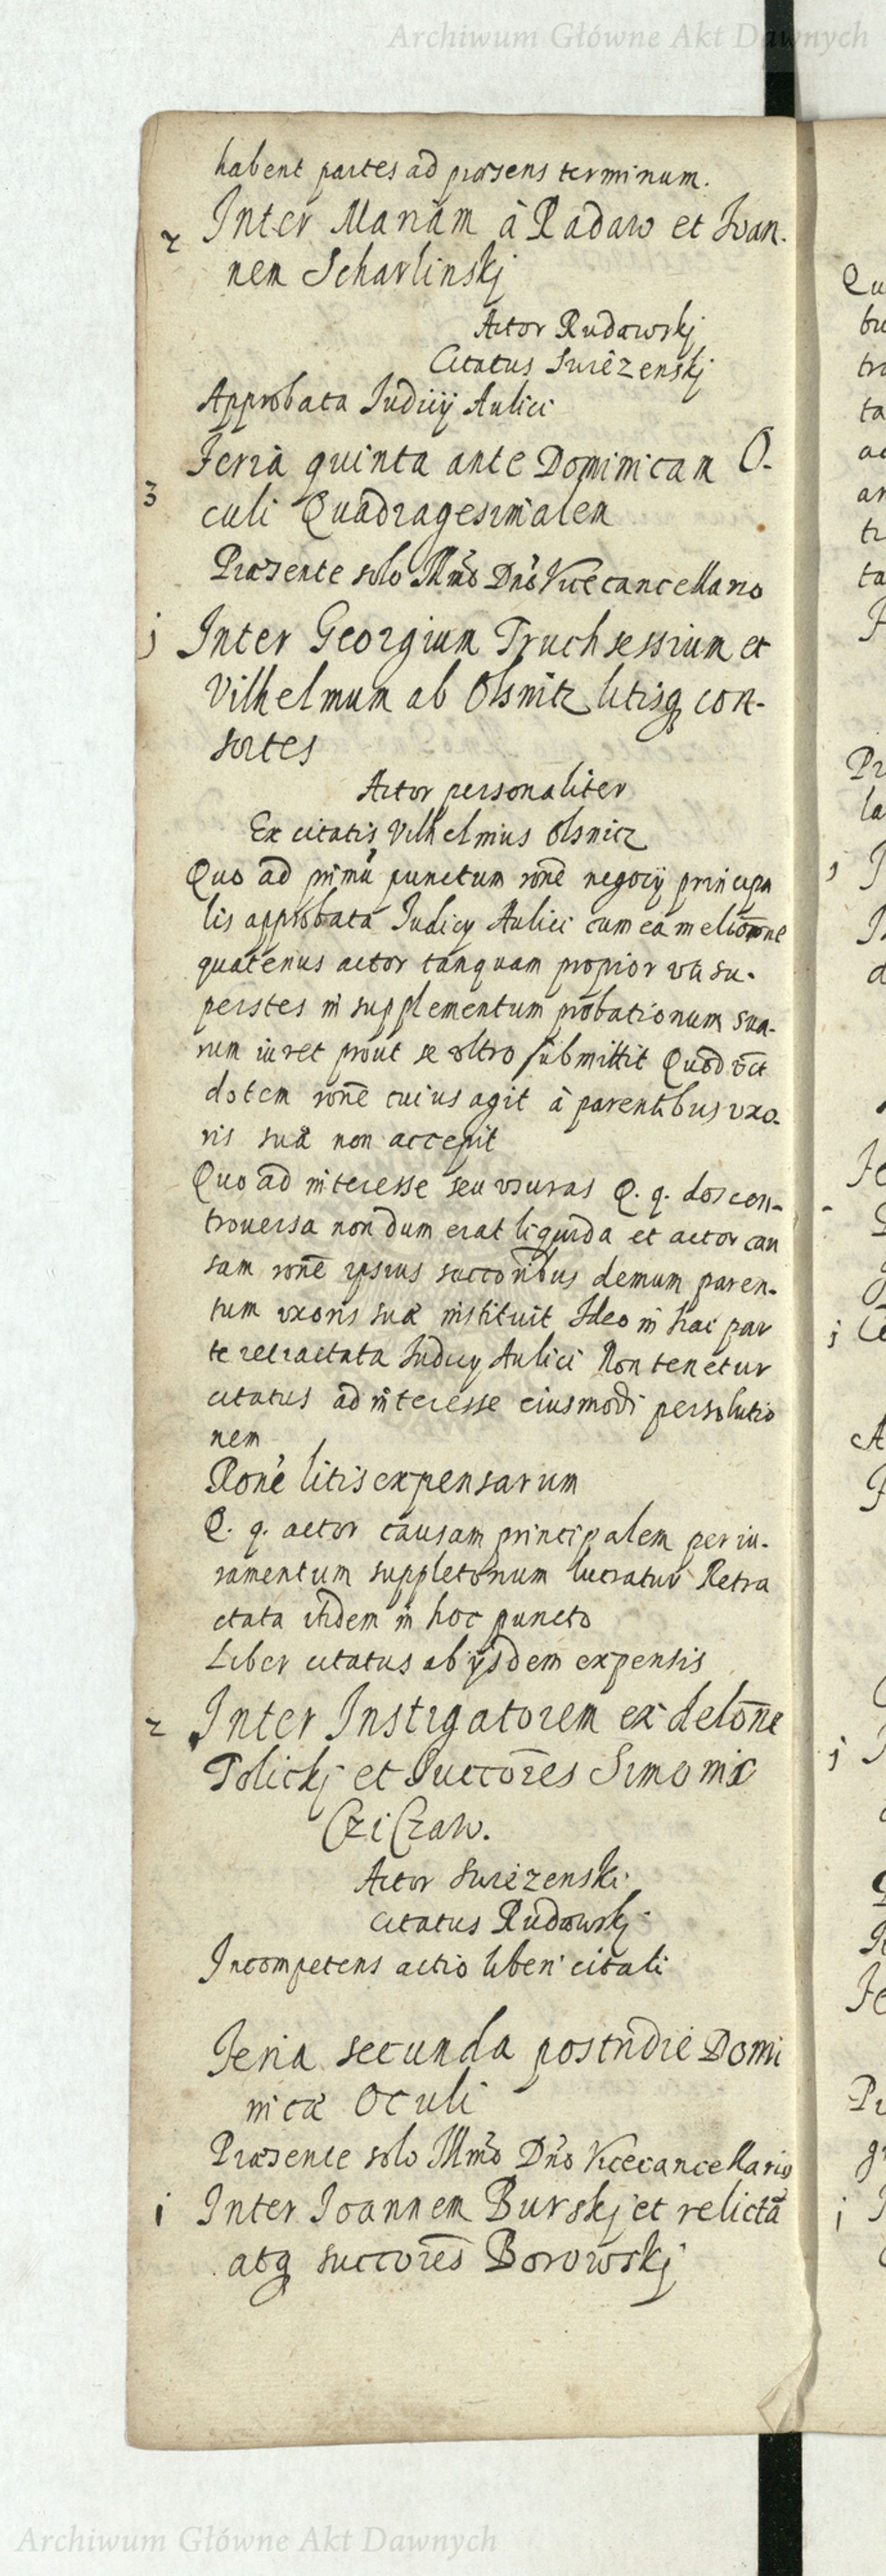 Archiwum Główne Akt Dawnych
habent partes ad præsens terminum.
2 Inter Mariam à Radaw et Ioan-
nem Scharlinskj
Actor Rudowskj
Citatus Swiêzenskj
Approbata Iudicij Aulici
3 Feria quinta ante Dominicam O-
culi Quadragesimalem
Præsente solo Illmo Dno Vicecancellario
j Inter Georgium Truchsessium et
Vilhelmum ab Olsnitz litisq con-
sortes
Actor personaliter
Ex citatis Vilhelmus Olsnitz
Quo ad primu punctum rone negocij principa
lis approbata Iudicy Aulici cum ea melioone
quatenus actor tanquam propior uti su-
perstes in supplementum probationum sua-
rum iuret prout se ultro submittit Quod vct
dotem rone cuius agit à parentibus uxo-
ris suæ non accepit
Quo ad interesse seu usuras Q. q. dos con-
trouersa nondum erat liquida et actor cau
sam rone ipsius succoribus demum paren-
tum uxoris suæ instituit Ideo in hac par
te retractata Iudicy Aulici Non tenetur
citatus ad interesse eiusmodi persolutio
nem
Rone litis expensarum
Q. q. actor causam principalem per iu-
ramentum suppletorium lucratur Retra
ctata itidem in hoc puncto
Liber citatus ab ijsdem expensis
2 Inter Instigatorem ex delone
Tolickj et Succores Simonis
CziCzaw.
Actor Swiezenski
Citatus Rudowskj
Incompetens actio liberi citati
Feria secunda postridie Domi
nicæ Oculi
Præsente solo Illmo Dno Vicecancellario
i Inter Ioannem Burskj et relictā
atq succores Borowskj
Archiwum Główne Akt Dawnych